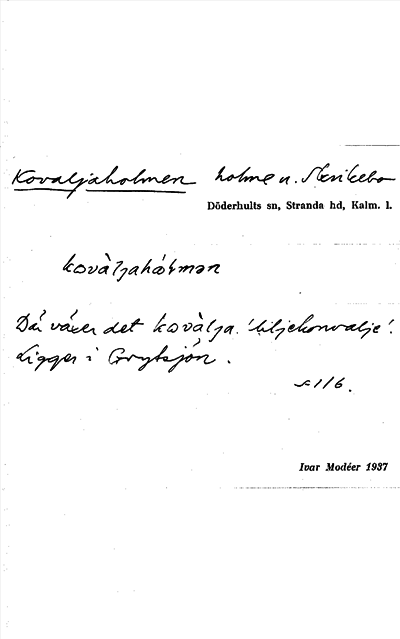 Kovaljaholmen holme n. Skrikebo
Döderhults sn, Stranda hd, Kalm. l.
kovàljahólmən
Där växer det kovàlja 'liljekonvalje'.
Ligger i Grytsjön.
s 116.
Ivar Modéer 1937